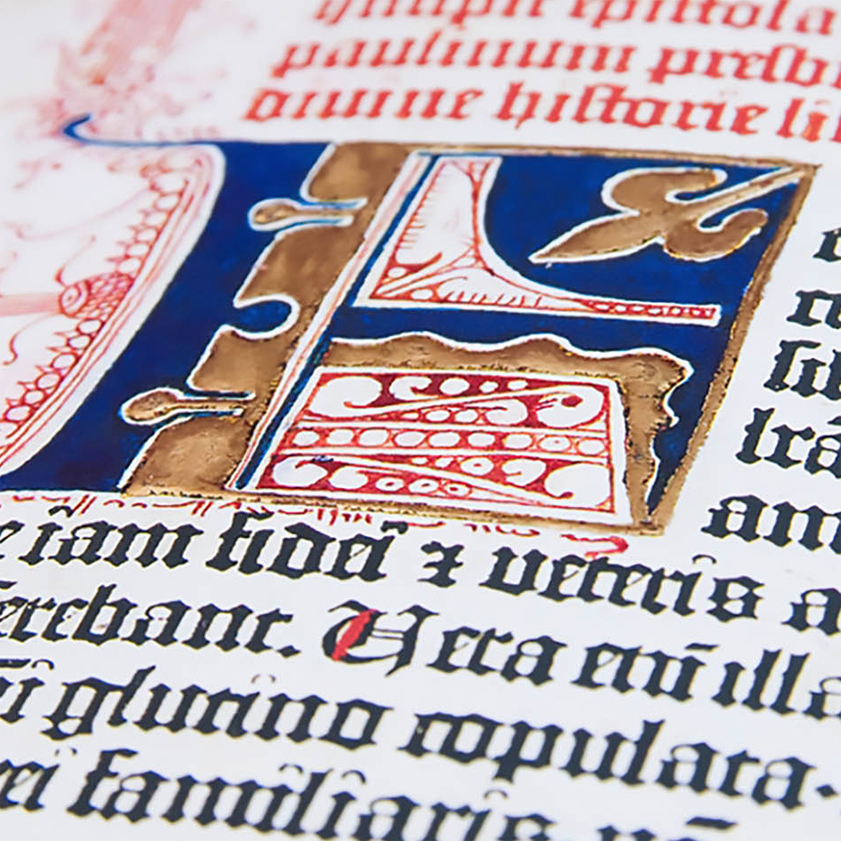 incipit epistola
paulinum presbi
diuine historie li
F
am
e iam fidei ⁊ ueteris a
ferebant. Uera eni̅ illa
i glutino copulata.
ei familiaris, no̅